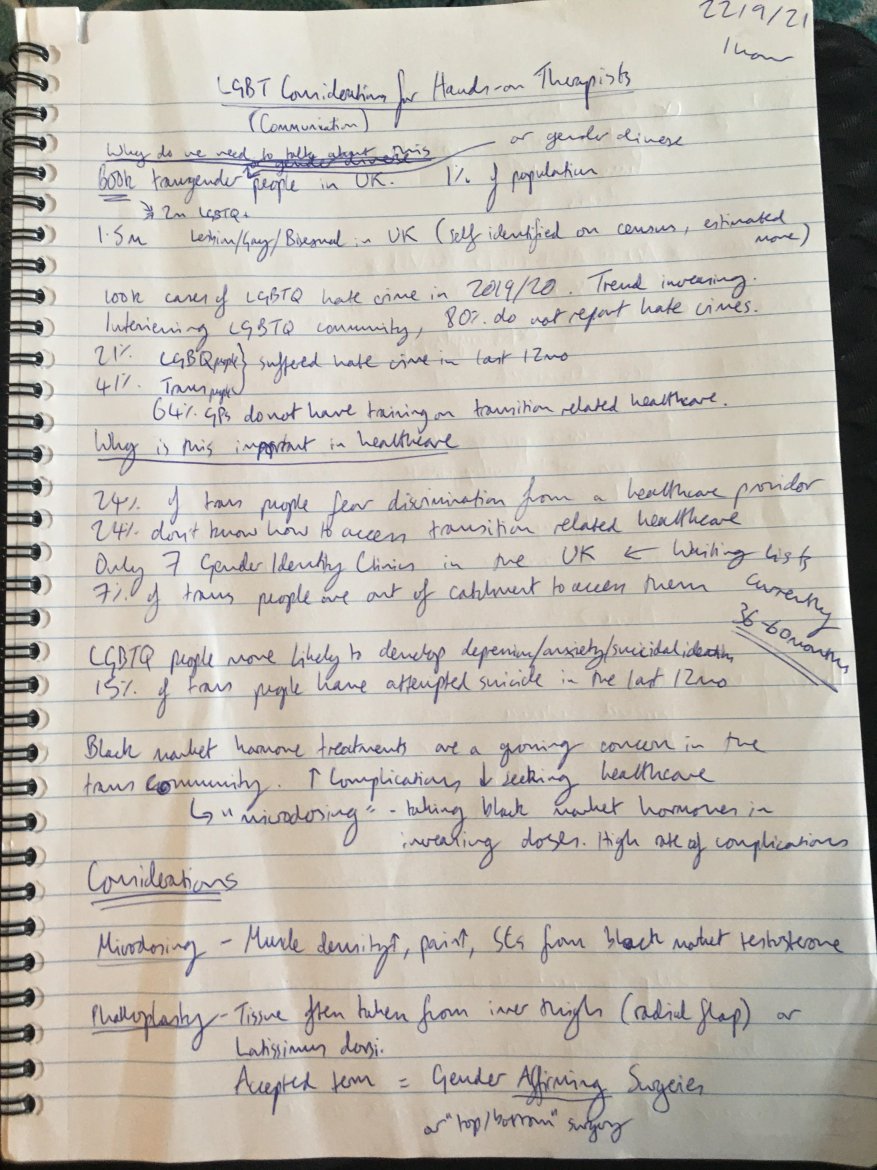 22/9/21
1 hour
LGBT Considerations for Hands-on Therapists
(Communication)
Why do we need to talk about this
or gender diverse
600k transgender people in UK. 1% of population
2m LGBTQ+
1.5m Lesbian/Gay/Bisexual in UK (self identified on census, estimated
more)
100k cases of LGBTQ hate crime in 2019/20. Trend increasing.
Interviewing LGBTQ community, 80% do not report hate crimes.
21% LGBQ people } suffered hate crime in last 12mo
41% Trans people
64% GPs do not have training on transition related healthcare.
Why is this important in healthcare
24% of trans people fear discrimination from a healthcare provider
24% don't know how to access transition related healthcare
Only 7 Gender Identity Clinics in the UK ← Waiting lists
7% of trans people are out of catchment to access them currently
36-60 months
LGBTQ people more likely to develop depression/anxiety/suicidal ideation
15% of trans people have attempted suicide in the last 12mo
Black market hormone treatments are a growing concern in the
trans community. ↑ Complications ↓ seeking healthcare
↳ "microdosing" - taking black market hormones in
increasing doses. High rate of complications
Considerations
Microdosing - Muscle density↑, pain↑, SEs from black market testosterone
Phalloplasty - Tissue often taken from inner thigh (radial flap) or
Latissimus dorsi.
Accepted term = Gender Affirming Surgeries
or "top/bottom" surgery